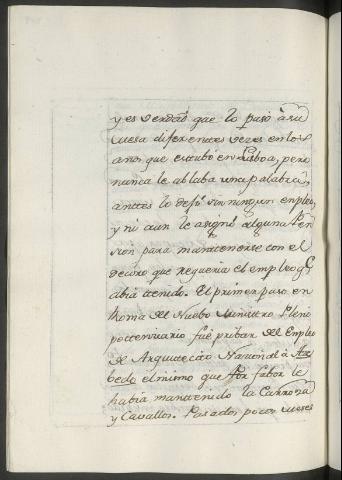 y es verdad que lo puso à su
mesa diferentes vezes en los
años que estubo en Lisboa, pero
nunca le ablaba una palabra,
anttes lo dejò sin ningun enpleo,
y ni aun le asignò alguna Pen
sion para manttenerse con el
decoro que requeria el empleo q̃
abia ttenido. El primer paso en
Roma del Nuebo Ministro Pleni
pottenciario fuè pribar del Empleo
de Arquitecto Nacional à Ar
bedo el mismo que Por fabor le
había manttenido la Carroza
y Cavallos. Pasados pocos meses